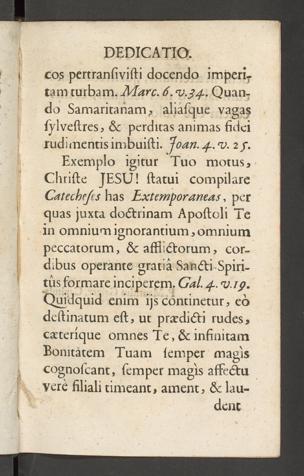 DEDICATIO.
cos pertransivisti docendo imperi-
tam turbam. Marc. 6. v. 34. Quan-
do Samaritanam, aliasque vagas
sylvestres, & perditas animas fidei
rudimentis imbuisti. Joan. 4. v. 25.
Exemplo igitur Tuo motus,
Christe JESU! statui compilare
Catecheses has Extemporaneas, per
quas juxta doctrinam Apostoli Te
in omnium ignorantium, omnium
peccatorum, & afflictorum, cor-
dibus operante gratiâ Sancti Spiri-
tûs formare inciperem. Gal. 4. v. 19.
Quidquid enim ijs continetur, eò
destinatum est, ut prædicti rudes,
cæterique omnes Te, & infinitam
Bonitatem Tuam semper magìs
cognoscant, semper magìs affectu
verè filiali timeant, ament, & lau-
dent